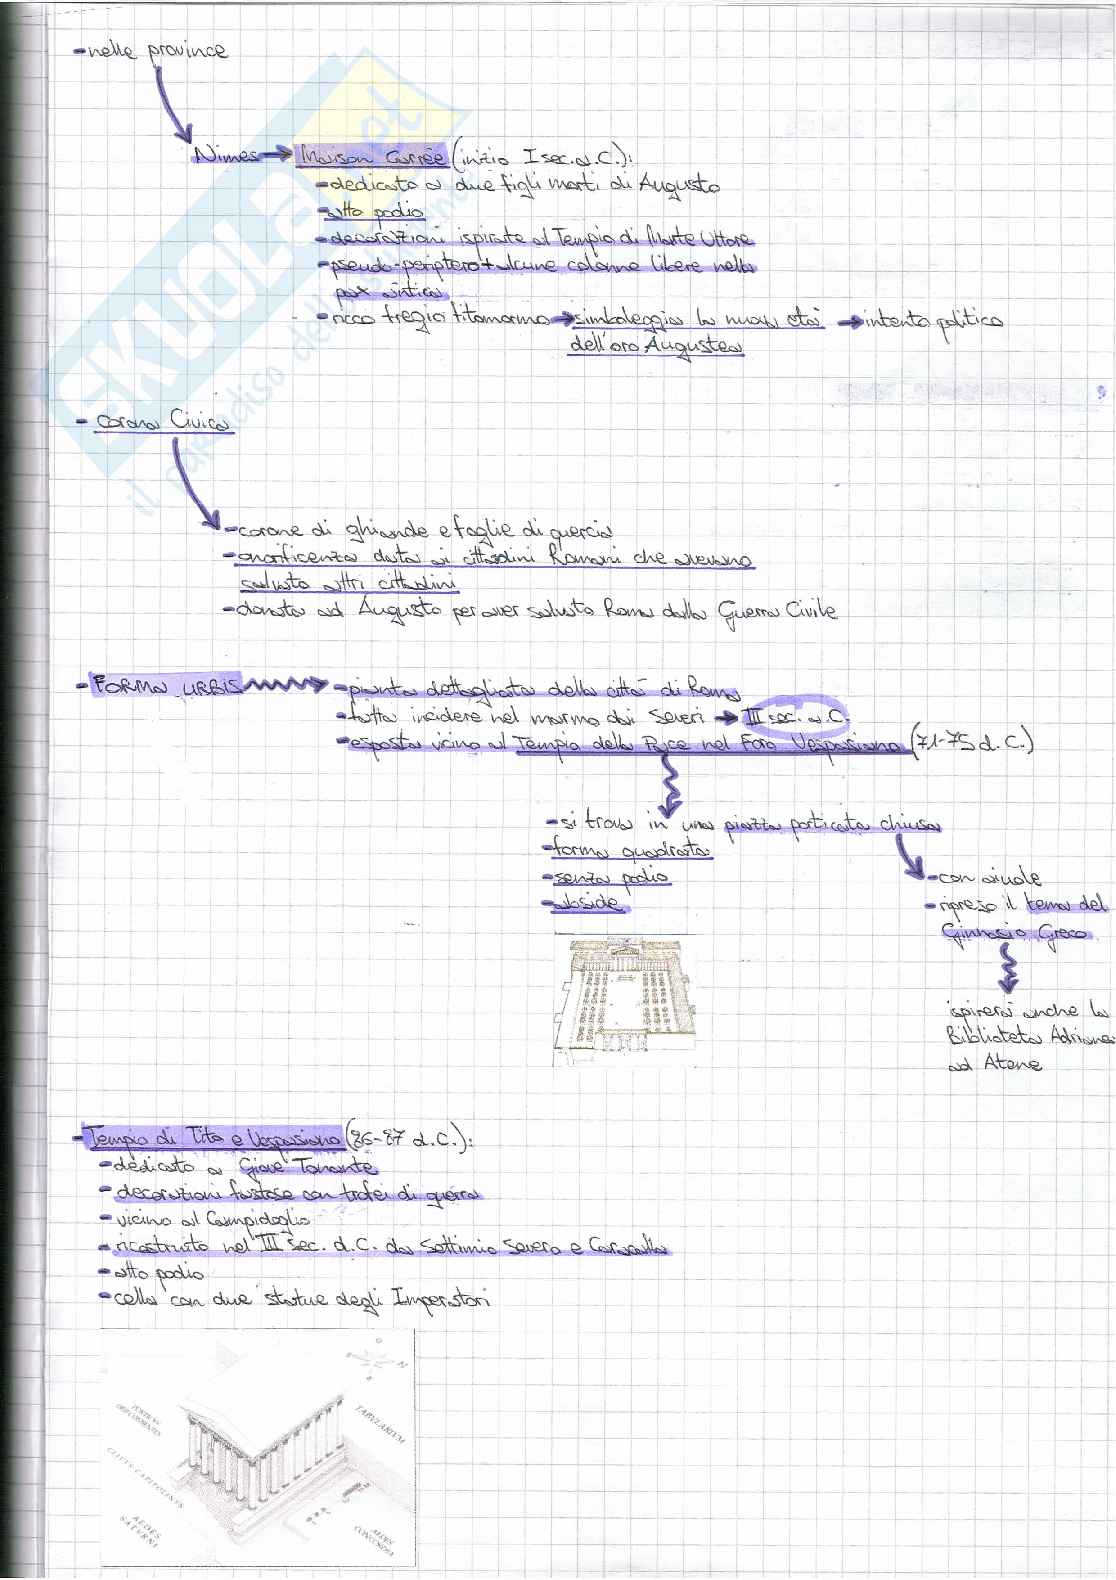 - nelle province
Nimes → Maison Carrée (inizio I sec. a.C.):
- dedicato a due figli morti di Augusto
- alto podio
- decorazioni ispirate al Tempio di Marte Ultore
- pseudo-periptero + alcune colonne libere nella
pars antica
- ricco fregio fitomorfo → simboleggia la nuova età → intento politico
dell'oro Augustea
- Corona Civica
- corone di ghiande e foglie di quercia
- onorificenza data ai cittadini Romani che avevano
salvato altri cittadini
- donata ad Augusto per aver salvato Roma dalla Guerra Civile
- FORMA URBIS → - pianta dettagliata della città di Roma
- fatta incidere nel marmo dai Severi → III sec. d.C.
- esposta vicino al Tempio della Pace nel Foro Vespasiano (71-75 d.C.)
- si trova in una piazza porticata chiusa
- forma quadrata
- senza podio
- abside
- con aiuole
- ripreso il tema del
Ginnasio Greco
ispirerà anche la
Biblioteca Adriana
ad Atene
- Tempio di Tito e Vespasiano (86-87 d.C.):
- dedicato a Giove Tonante
- decorazioni fastose con trofei di guerra
- vicino al Campidoglio
- ricostruito nel III sec. d.C. da Settimio Severo e Caracalla
- alto podio
- cella con due statue degli Imperatori
N
TABULARIUM
CLIVUS CAPITOLINUS
AEDES
SATURNI
AEDES
CONCORDIA
SKUOLA.net
il paradiso dello studente